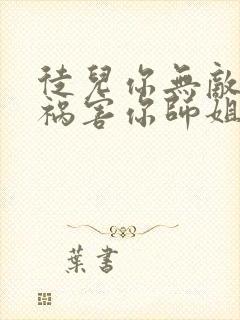 徒兒你無敵
禍害你師姐
葉書